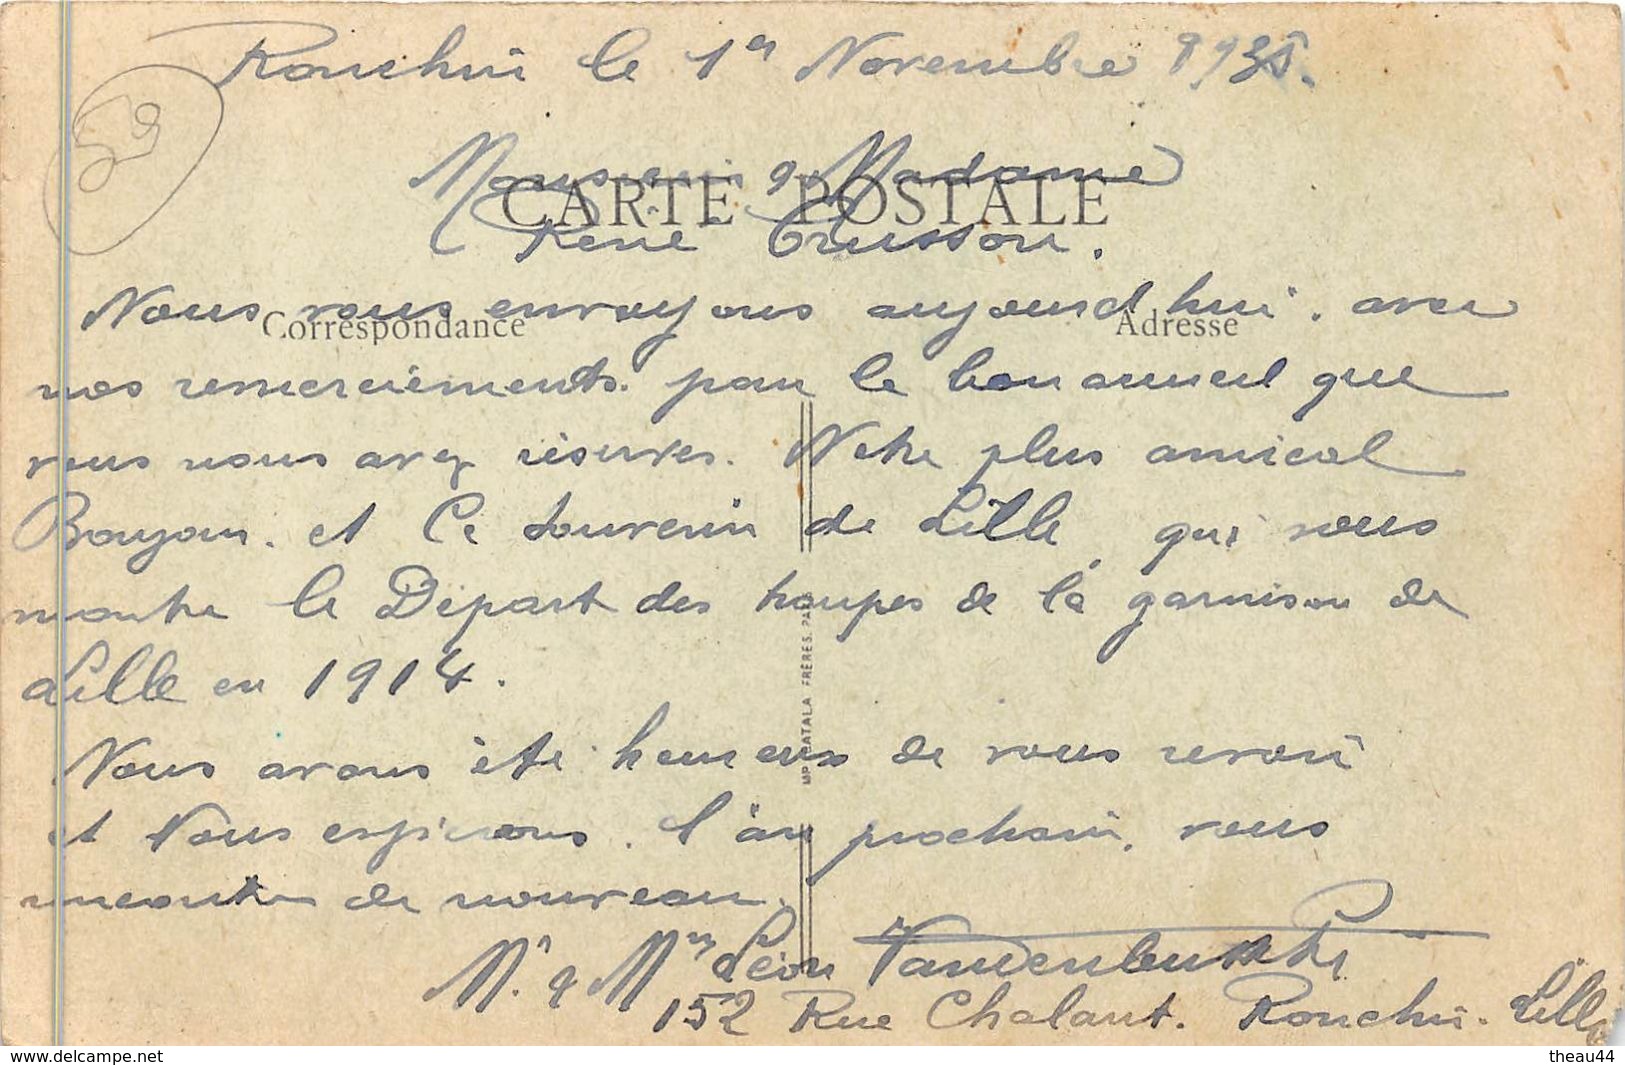 Ronchin le 1er Novembre 1935.
59
Monsieur & Madame
CARTE POSTALE
René Crusson.
Nous vous envoyons aujourd hui. avec
Correspondance
Adresse
nos remerciements. pour le bon acceuil que
vous nous avez réserves. Notre plus amical
Bonjour. et Ce Souvenir de Lille qui vous
montre le Départ des troupes de la garnison de
Lille en 1914.
Nous avons été heureux de vous revoir
et Nous espérons. l'an prochain, vous
rencontrer de nouveau.
Mr & Mme Léon Vandenbussche
152 Rue Chalant. Ronchin. Lille
IMP. CATALA FRERES. PARIS
theau44